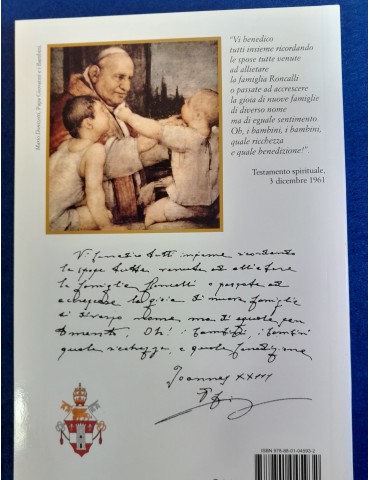 Mario Donizetti, Papa Giovanni e i Bambini.
"Vi benedico
tutti insieme ricordando
le spose tutte venute
ad allietare
la famiglia Roncalli
o passate ad accrescere
la gioia di nuove famiglie
di diverso nome
ma di eguale sentimento.
Oh, i bambini, i bambini,
quale ricchezza
e quale benedizione!".
Testamento spirituale,
3 dicembre 1961
Vi benedico tutti insieme ricordando
le spose tutte venute ad allietare
la famiglia Roncalli o passate ad
accrescere la gioia di nuove famiglie
di diverso nome, ma di eguale sen
timento. Oh! i bambini, i bambini
quale ricchezza, e quale benedizione
Joannes XXIII